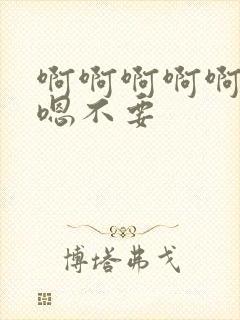 啊啊啊啊啊
嗯不要
博塔弗戈